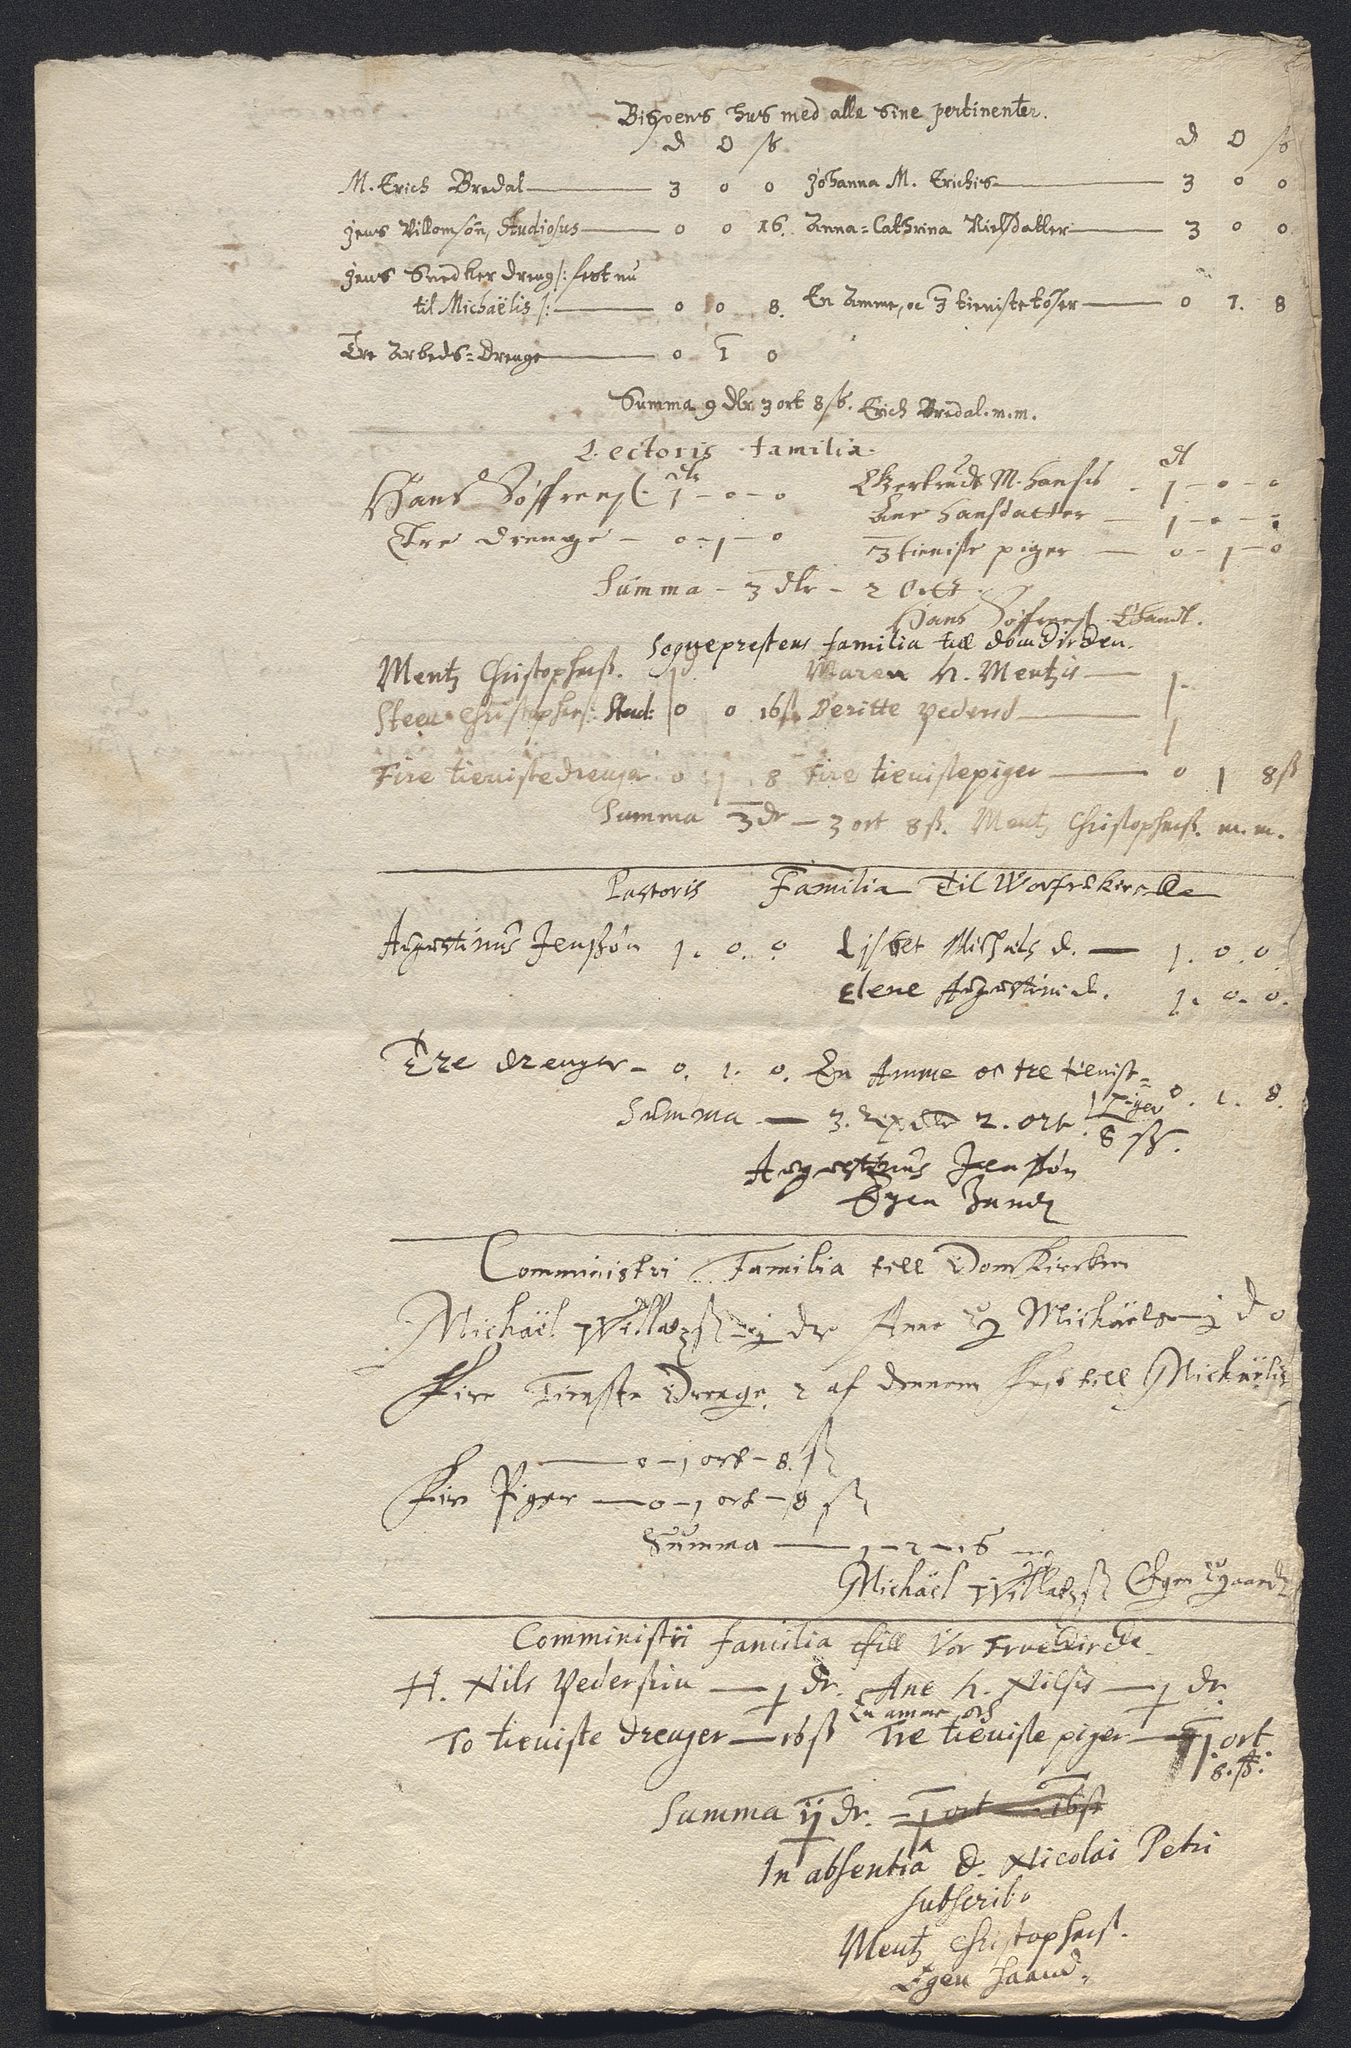 Bispens hus med alle sine pertinenter.
d O ß d O ß
M. Erich Bredal 3 0 0 Johanna M. Erichis 3 0 0
Jens Villomsøn, Studiosus 0 0 16. Anna=Cathrina Nielsdatter 3 0 0
Jens Snedker dreng /: fest nu
til Michaëlis :/ 0 0 8. En Amme, oc 3 tieniste tøser 0 1. 8
Tre Arbeds=Drenge 0 1 0
Summa 9 dlr 3 ort 8 ß. Erich Bredal. m.m.
Lectoris familia.
dlr dl
Hans Søffrens. 1 - 0 - 0 Giertrud M. Hansis - 1 - 0 - 0
Ane Hansdatter - 1 - 0 - 0
Tre drenge - 0 - 1 - 0 3 tieniste piger - 0 - 1 - 0
Summa - 3 dlr - 2 Ortt.
Hans Søffrens. Ehandt.
Sogneprestens familia till domkircken.
Mentz Christophers. 1 d. Maren H. Mentzis 1.
Steen Christophers: Stud: 0 0 16 ß. Beritte Pedersd 1
Fire tienistedrenger 0 1 8 Fire tienistepiger 0 1 8 ß
Summa 3 dr - 3 ort 8 ß. Mentz Christophers. m.m.
Pastoris Familia Til Worfrukircke
Augustinus Jenssøn 1. 0. 0 Lisbet Michels d. 1. 0. 0.
Elene Augustini d. 1. 0. 0.
Tre drenger - 0. 1. 0. En Amme oc tre tienist=
piger 0. 1. 8.
Summa - 3. Rixdlr 2. ort. 8 ß.
Augustinus Jenssøn
Egen Hand
Comministri Familia till Domkircken
Michäel Willadß - j dlr Anne Michäels - j d 0
Fire Tienste Drenge, 2 af dennem fest till Michaelis
0 - 1 ort - 8. ß
Fire Piger 0 - 1 ort - 8 ß
Summa 2 - 2 - 16
Michäel Willadß Egen Haandt
Comministri familia till Vor Fruekircke
H. Nils Pedersøn - 1 dr. Ane H. Nilsis - 1 dr.
En amme och
To tieniste drenger - 16 ß Tre tieniste piger - 1 ort
8. ß.
Summa ij dr. - 1 ort - 16 ß
In absentiâ D. Nicolai Petri
subscribo
Mentz Christophers.
Egen haand.